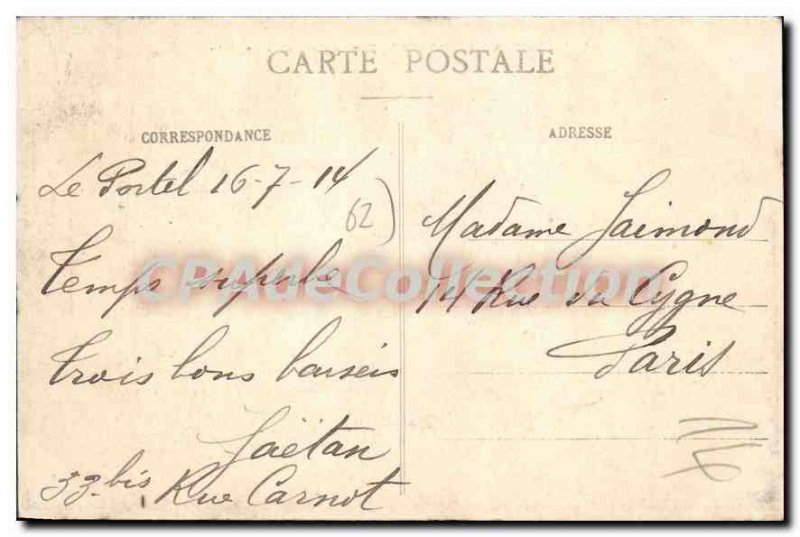 CARTE POSTALE
CORRESPONDANCE
Le Portel 16-7-14
62
Temps superbe
trois bons baisers
Gaëtan
33 bis
Rue Carnot
ADRESSE
Madame Jaimond
14 Rue du Cygne
Paris
CPAdeCollection.com